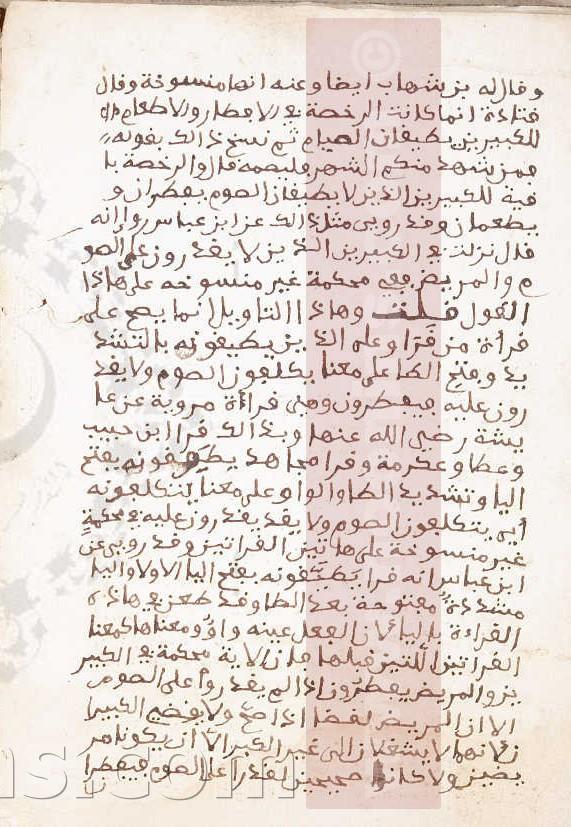 وقال له بن شهاب ايضا وعنه انها منسوخة وقال
قتادة انما كانت الرخصة في الافطار والاطعام
للكبيرين يطيقان الصيام ثم نسخ ذالك بقوله
فمن شهد منكم الشهر فليصمه قال والرخصة با
قية للكبيرين الذين لا يطيقان الصوم يفطران و
يطعمان وقد روي مثل ذالك عن ابن عباس روا انه
قال نزلت في الكبيرين الذين لا يقدرون على الصو
م والمريض فهي محكمة غير منسوخه على هاذا
القول قلت وهاذا التاويل انما يصح على
قرأة من قرا وعلى الذين يطيقونه بالتشد
يد وفتح الطا على معنا يكلفون الصوم ولا يقد
رون عليه فيفطرون وهي قرأة مروية عن عا
يشة رضي الله عنها وبذالك قرا ابن حبيب
وعطا وعكرمة وقرا مجاهد يطيقونه بفتح
اليا وتشديد الطا والوا وعلى معنا يتكلفونه
أي يتكلفون الصوم ولا يقدرون عليه فهي محكمة
غير منسوخة على هاتين القراتين وقد روي عن
ابن عباس انه قرا يطيقونه بفتح اليا الاولا واليا
مشددة مفتوحة بعد الطا وقد طعن في هاذه
القراءة باليا لان الفعل عينه واو ومعناها كمعنا
القراتين اللتين قبلها فان الاية محكمة في الكبير
ين والمريض يفطرون اذا لم يقدروا على الصوم
الا ان المريض لقضا اذا صح ولا يقضي الكبيرا
ن لانهما لا ينتقلان الى غير الكبر الا ان يكونا مر
يضين ولا كانوا صحيحين لقدرا على الصوم فيفطرا